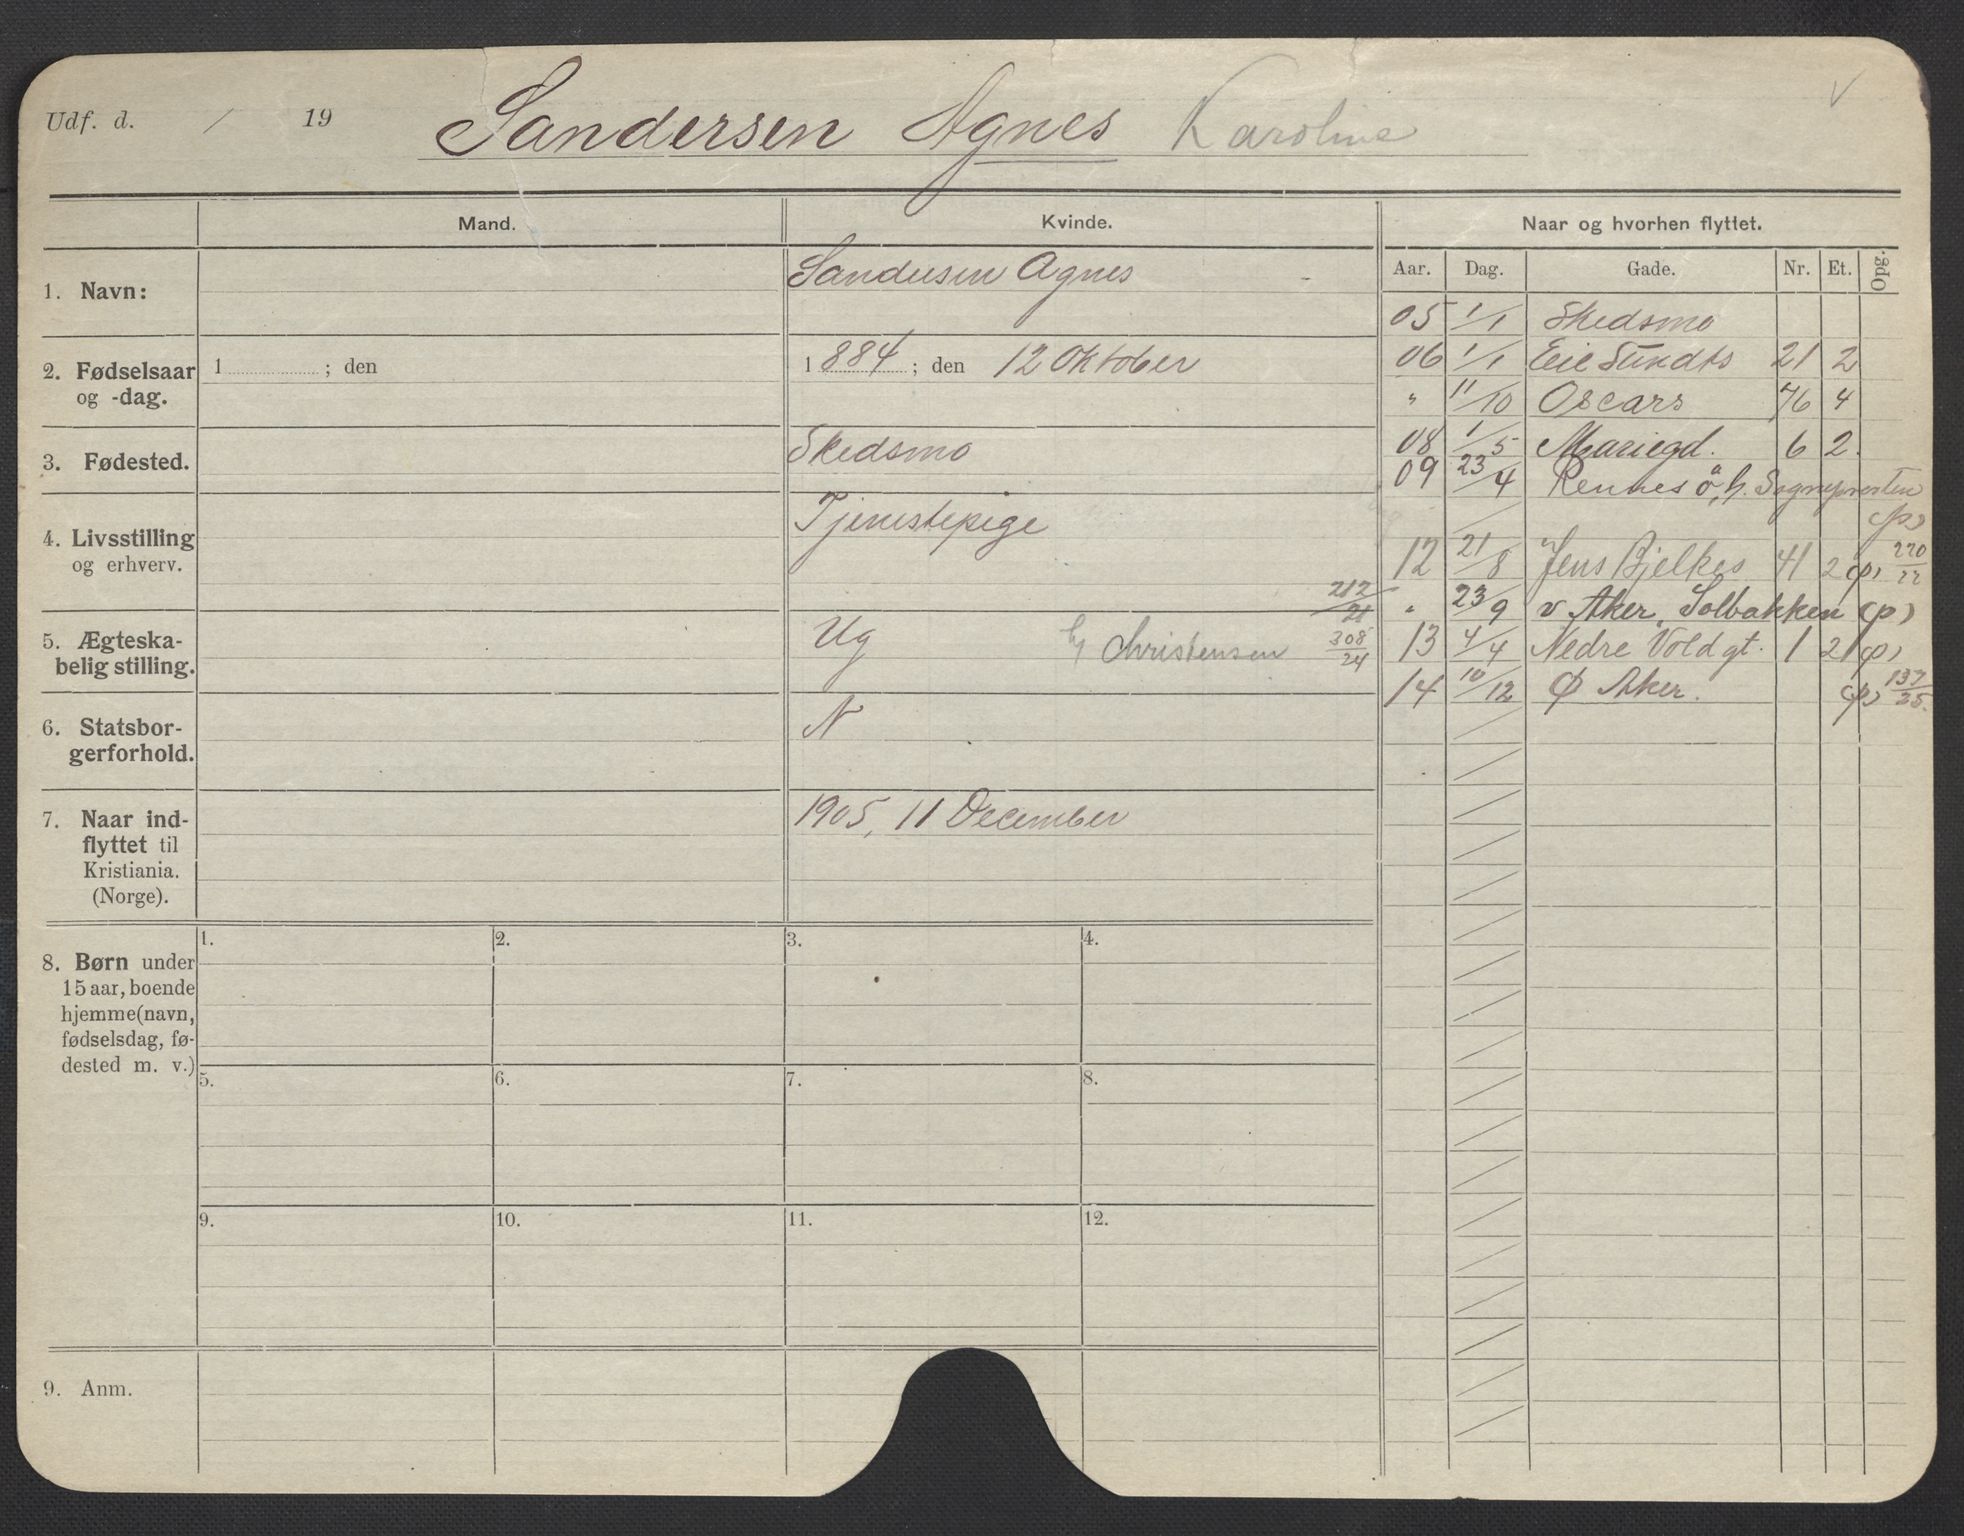 Udf. d. / 19 Sandersen Agnes Karoline
Mand. Kvinde. Naar og hvorhen flyttet.
Aar. Dag. Gade. Nr. Et. Opg.
1. Navn: Sandersen Agnes
2. Fødselsaar og -dag. 1 ; den 1884 ; den 12 Oktober
3. Fødested. Skedsmo
4. Livsstilling og erhverv. Tjenestepige
5. Ægteska-
belig stilling. Ug Christensen
212/21
308/24
6. Statsbor-
gerforhold. N
7. Naar ind-
flyttet til
Kristiania.
(Norge). 1905, 11 December
05 1/1 Skedsmo
06 1/1 Eilt Sundts 21 2
" 11/10 Oscars 76 4
08 1/5 Mariegd. 6 2.
09 23/4 Rennesö, h. Sognepresten
(p)
12 21/8 Jens Bjelkes 41 2 (p) 220/22
" 23/9 v Aker, Solbakken (p)
13 4/4 Nedre Voldgt. 1 2 (p)
14 10/12 Ø Aker. (p) 137/25.
8. Børn under
15 aar, boende
hjemme (navn,
fødselsdag, fø-
dested m. v.)
1. 2. 3. 4.
5. 6. 7. 8.
9. 10. 11. 12.
9. Anm.